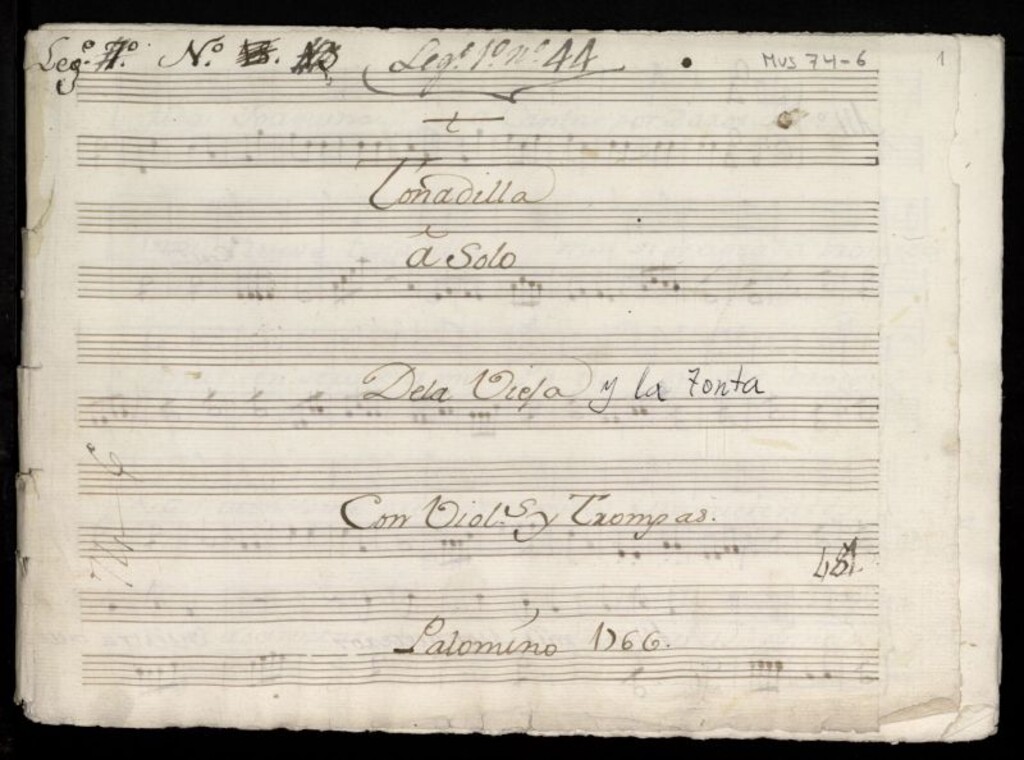 Leg.º 7.º N.º Leg.º 1.º n.º 44 MUS 74-6 1
t
Tonadilla
â Solo
Dela Vieja y la Tonta
Con Viol.s y Trompas.
Palomino 1766.